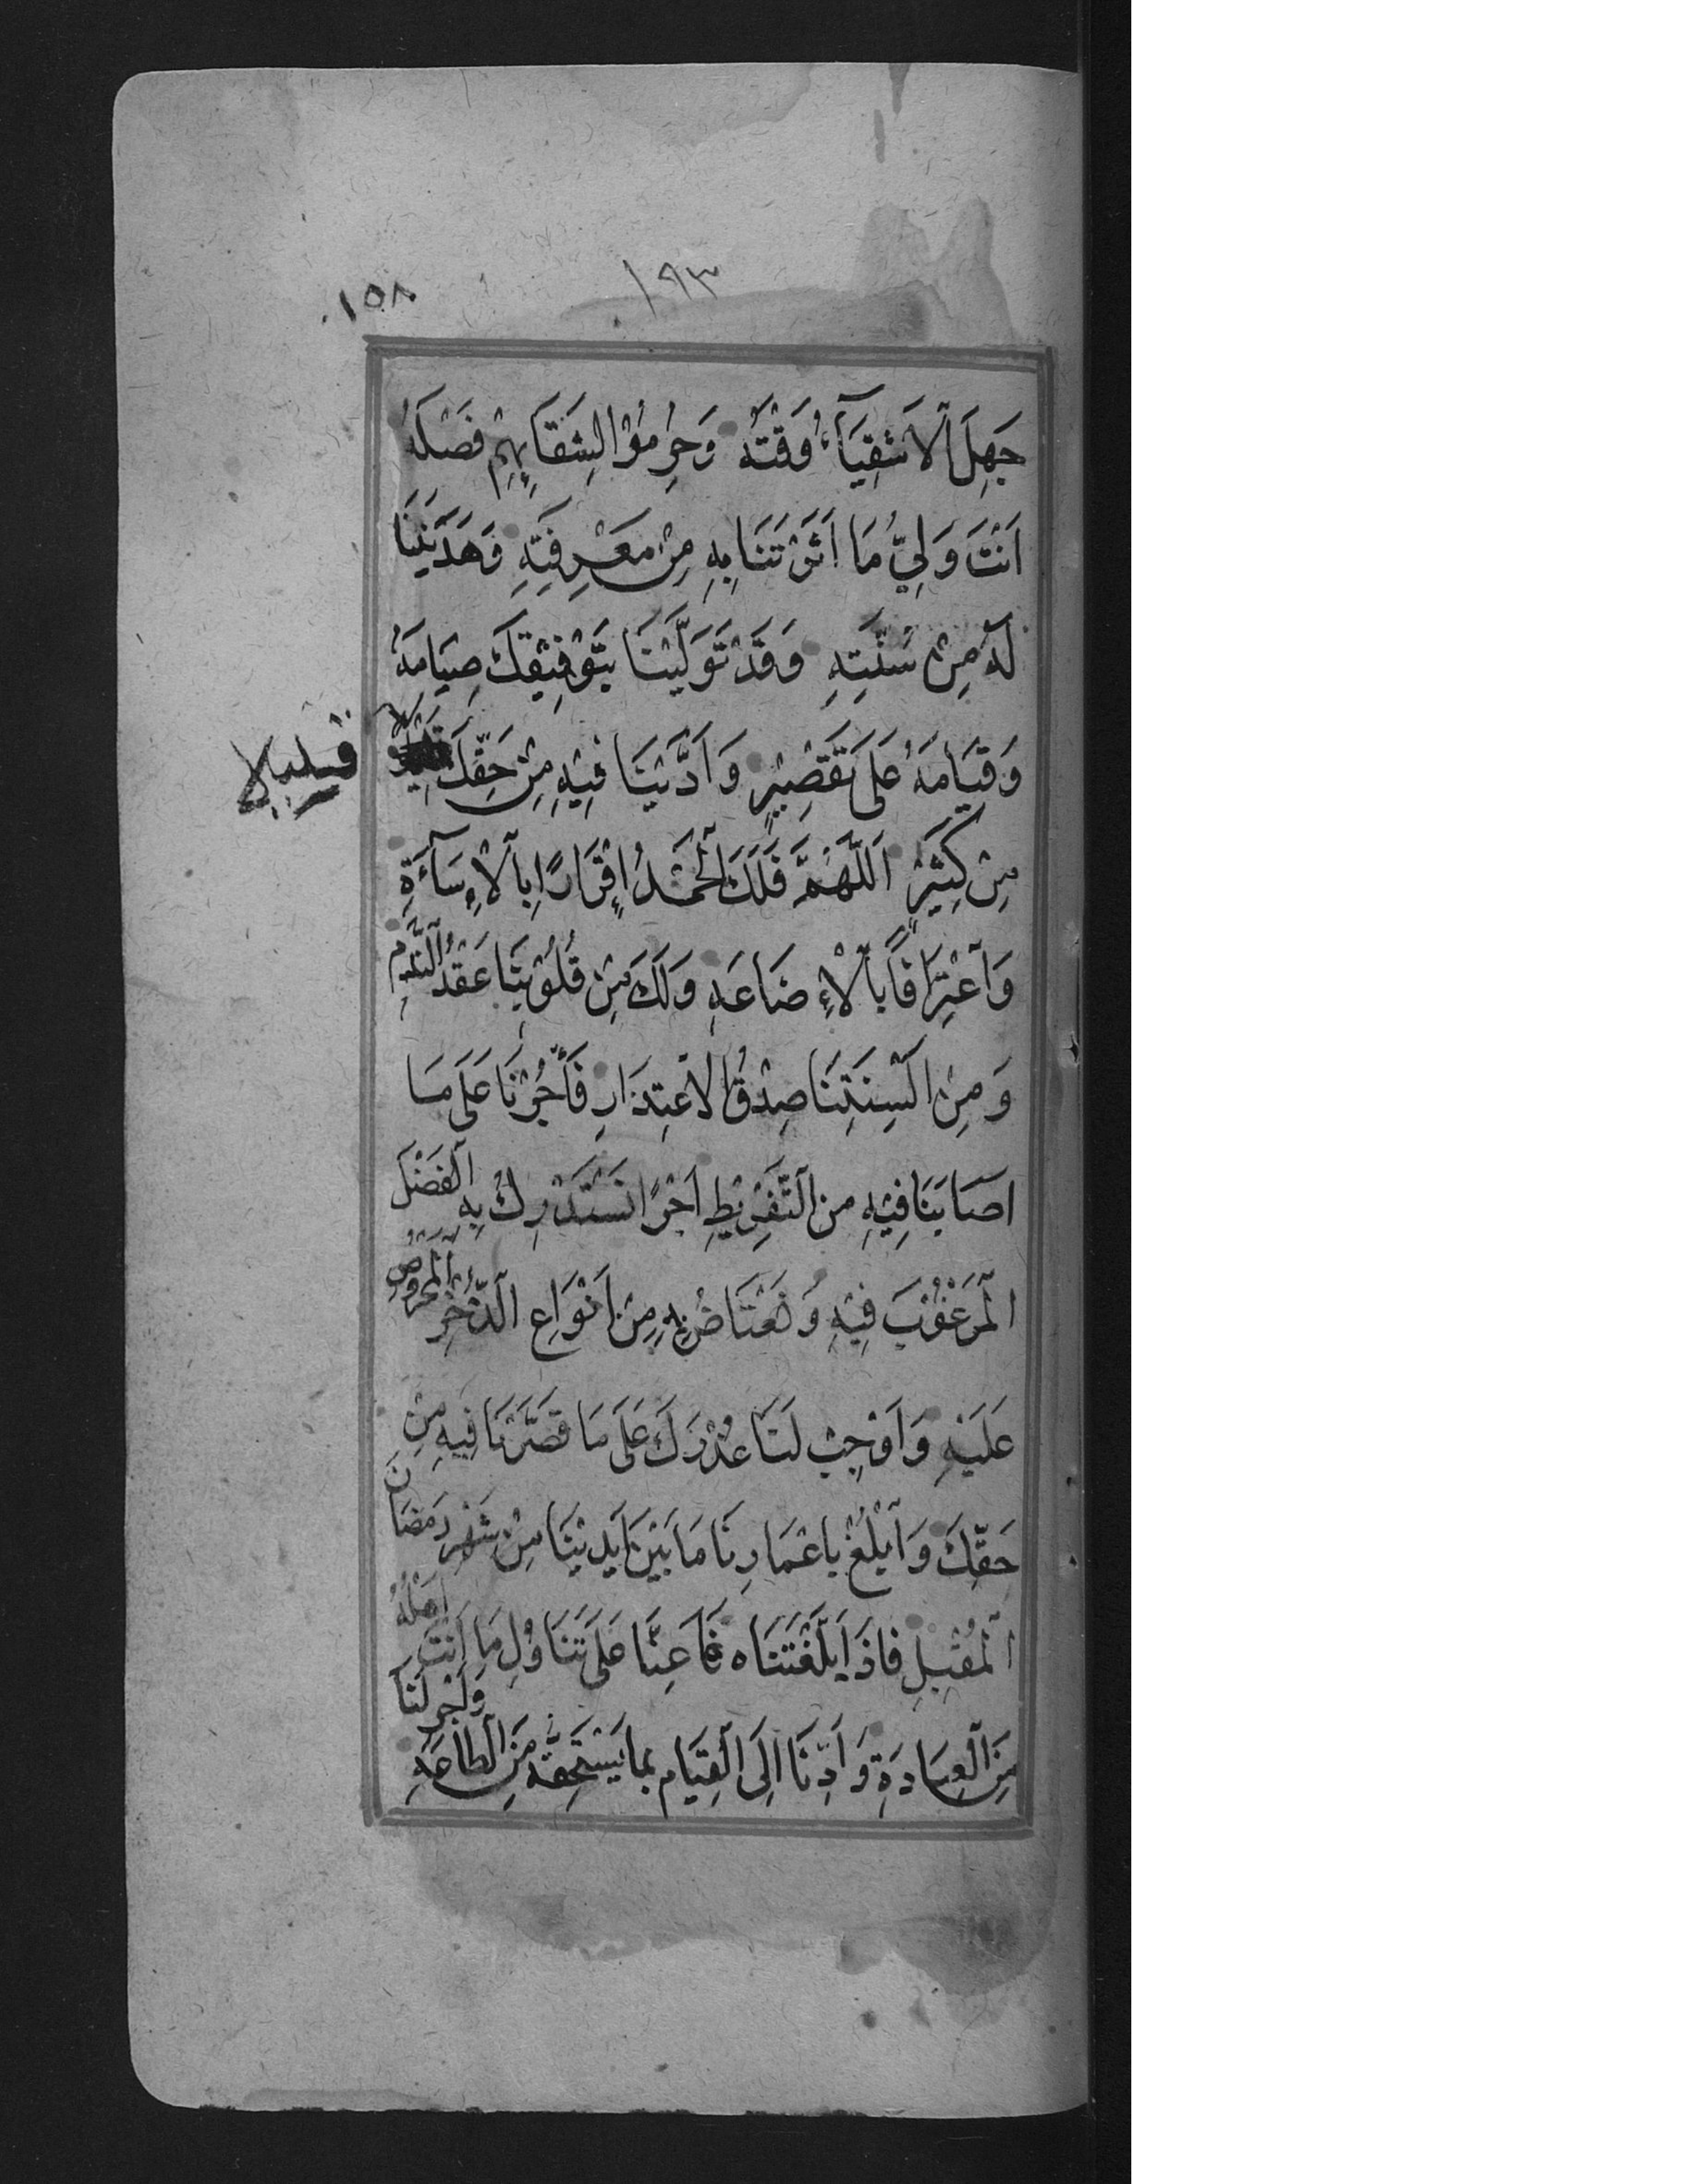 ١٩٣
١٥٨
جَهِلَ ٱلْاَشْقِيَآءُ وَقْتَهُ وَحُرِمُوْا لِشَقَآئِهِمْ فَضْلَهُ
اَنْتَ وَلِيُّ مَا اَثَرْتَنَا بِهِ مِنْ مَعْرِفَتِهِ وَهَدَيْتَنَا
لَهُ مِنْ سُنَّتِهِ وَقَدْ تَوَلَّيْنَا بِتَوْفِيْقِكَ صِيَامَهُ
وَقِيَامَهُ عَلَى تَقْصِيْرٍ وَاَدَّيْنَا فِيْهِ مِنْ حَقِّكَ
قليلا
مِنْ كَثِيْرٍ اَللّٰهُمَّ فَلَكَ ٱلْحَمْدُ اِقْرَارًا بِٱلْاِسَآءَةِ
وَٱعْتِرَافًا بِٱلْاِضَاعَهِ وَلَكَ مِنْ قُلُوْبِنَا عَقْدُ ٱلنَّدَمِ
وَمِنْ اَلْسِنَتِنَا صِدْقُ الْاعْتِذَارِ فَأْجُرْنَا عَلَى مَا
اصَابَنَا فِيْهِ مِنَ ٱلتَّفْرِيْطِ اَجْرًا نَسْتَدْرِكُ بِهِ ٱلْفَضْلَ
ٱلْمَرْغُوْبَ فِيْهِ وَنَعْتَاضُ بِهِ مِنْ اَنْوَاعِ ٱلذُّخْرِ ٱلْمَحْرُوْصِ
عَلَيْهِ وَاَوْجِبْ لَنَا عُذْرَكَ عَلَى مَا قَصَّرْنَا فِيْهِ مِنْ
حَقِّكَ وَٱبْلُغْ بِاعْمَارِنَا مَا بَيْنَ اَيْدِيْنَا مِنْ شَهْرِ رَمَضَانَ
ٱلْمُقْبِلِ فَاذَا بَلَّغْتَنَاه فَاَعِنَّا عَلَى تَنَاوُلِ مَا اَنْتَ اَهْلُهُ
مِنَ ٱلْعِبَادَةِ وَاَدِّنَا اِلَى ٱلْقِيَامِ بِمَا يَسْتَحِقُّهُ مِنَ ٱلطَّاعَهِ وَاَجْرِ لَنَا